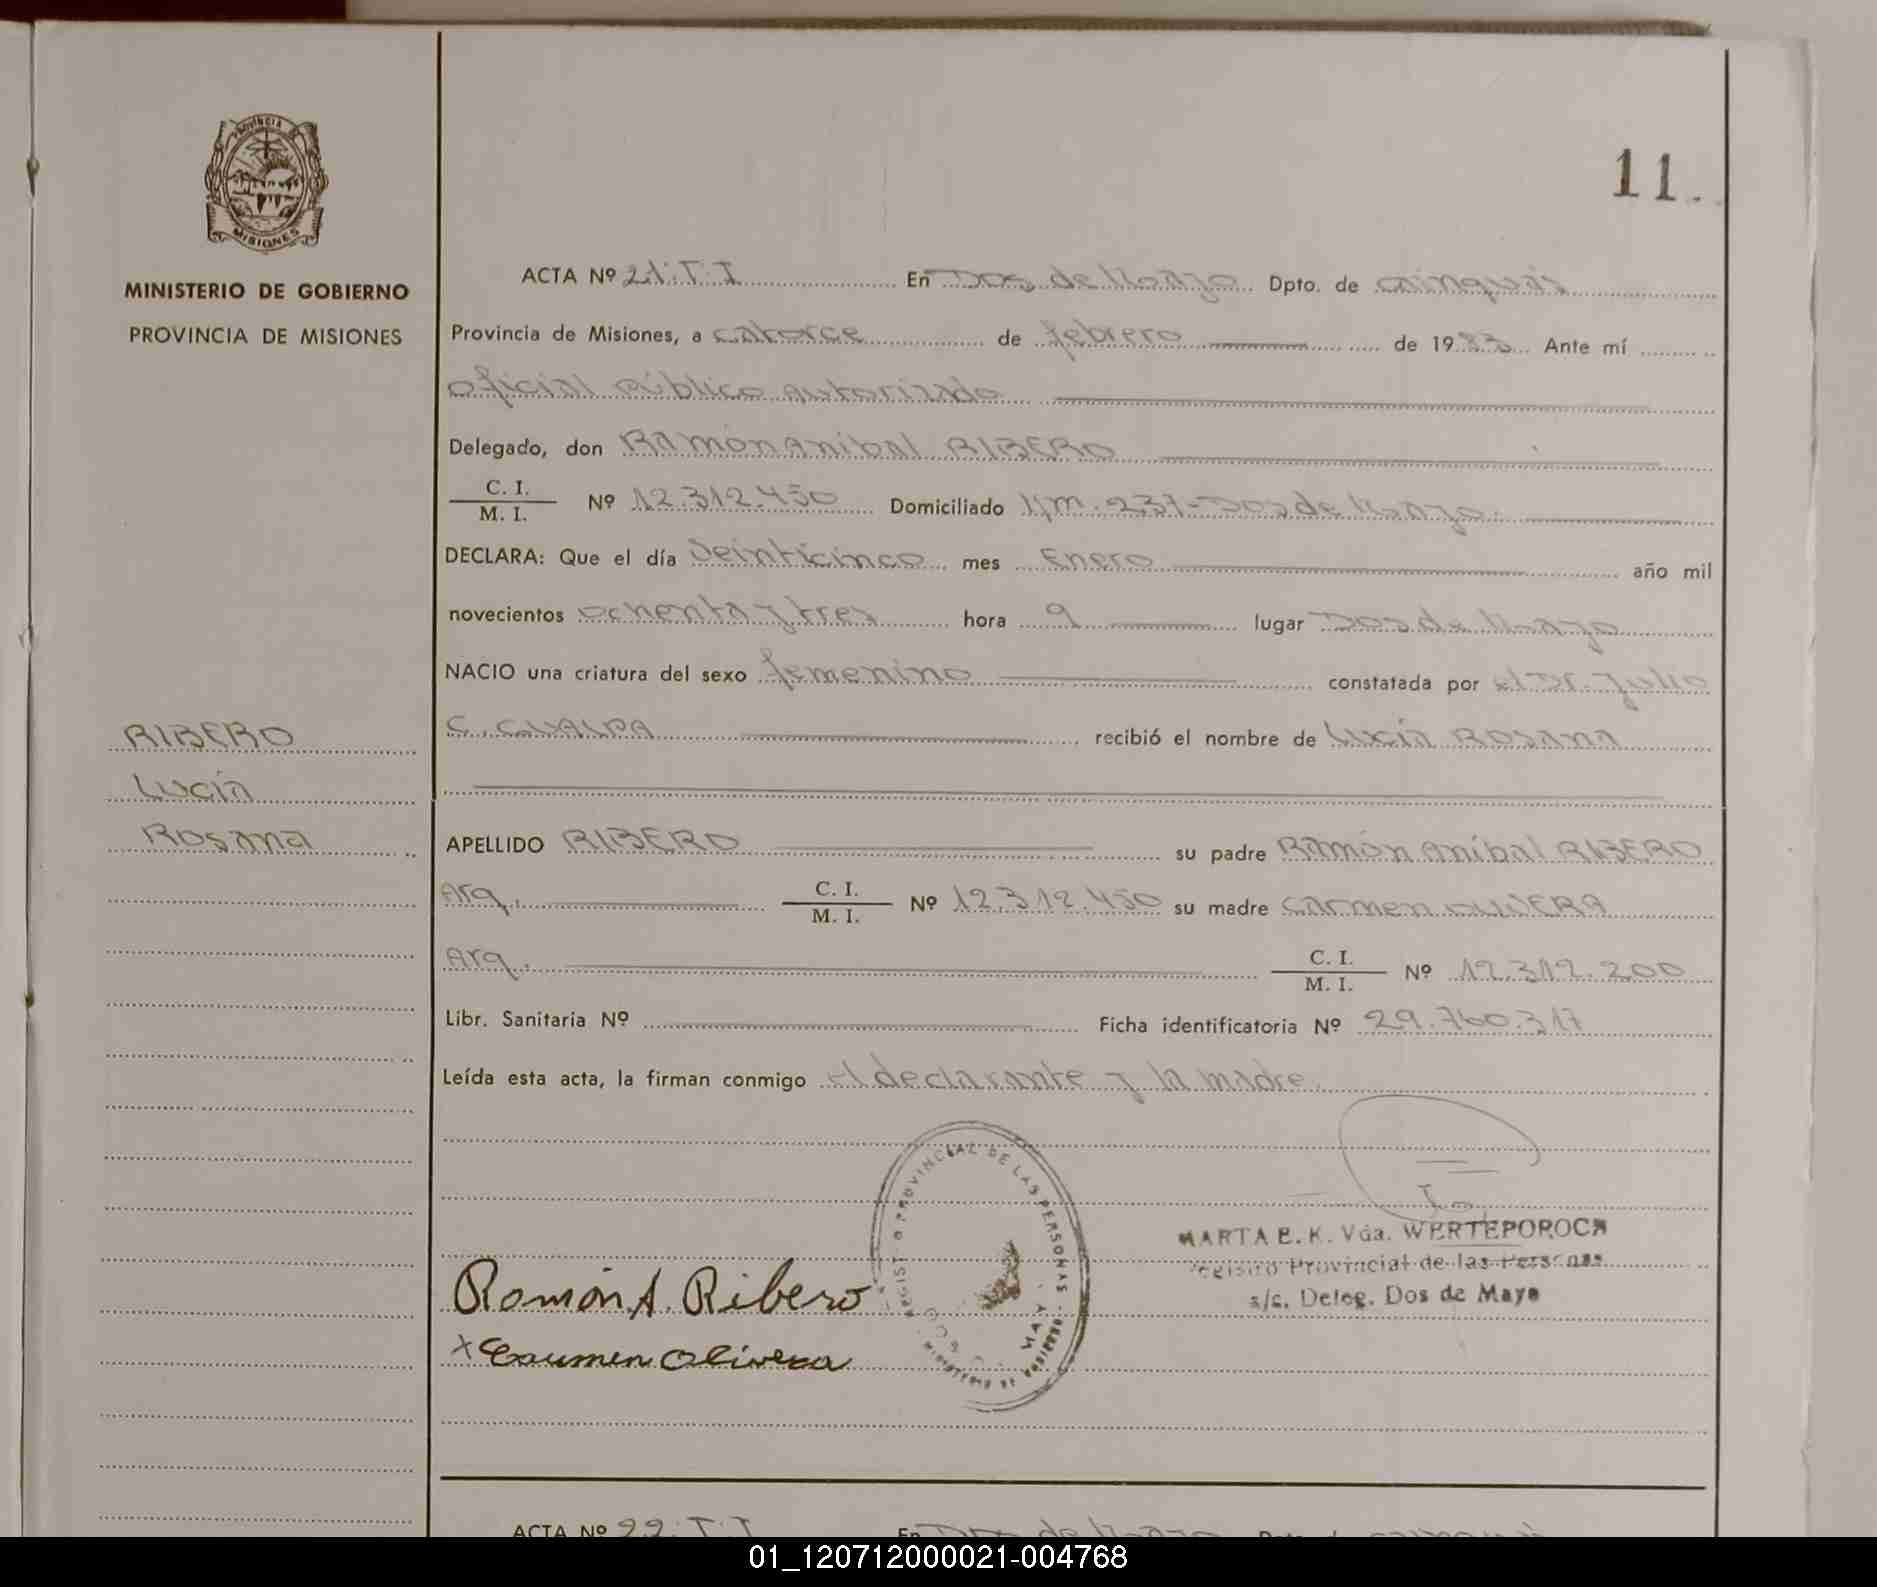 PROVINCIA DE
MISIONES
MINISTERIO DE GOBIERNO
PROVINCIA DE MISIONES
RIBERO
Lucía
Rosana
11
ACTA Nº 21.T.I En Dos de Mayo Dpto. de Cainguás
Provincia de Misiones, a catorce de febrero de 1983 Ante mí
oficial Público autorizado
Delegado, don Ramón Anibal RIBERO
C. I.
M. I. Nº 12.312.450 Domiciliado Km. 237-Dos de Mayo.
DECLARA: Que el día Veinticinco mes Enero año mil
novecientos ochenta y tres hora 9 lugar Dos de Mayo
NACIO una criatura del sexo femenino constatada por el Dr. Julio
C. CUALPA recibió el nombre de Lucía Rosana
APELLIDO RIBERO su padre Ramón Anibal RIBERO
Arq. C. I.
M. I. Nº 12.312.450 su madre Carmen OLIVERA
Arq. C. I.
M. I. Nº 12.312.200
Libr. Sanitaria Nº Ficha identificatoria Nº 29.760.317
Leída esta acta, la firman conmigo el declarante y la madre.
PROVINCIAL DE LAS PERSONAS
MARTA E. K. Vda. WERTEPOROCH
Registro Provincial de las Personas
a/c. Deleg. Dos de Mayo
Ramón A. Ribero
x Carmen Olivera
ACTA Nº 22.T.I En Dos de Mayo Dpto. de Cainguás
01_120712000021-004768